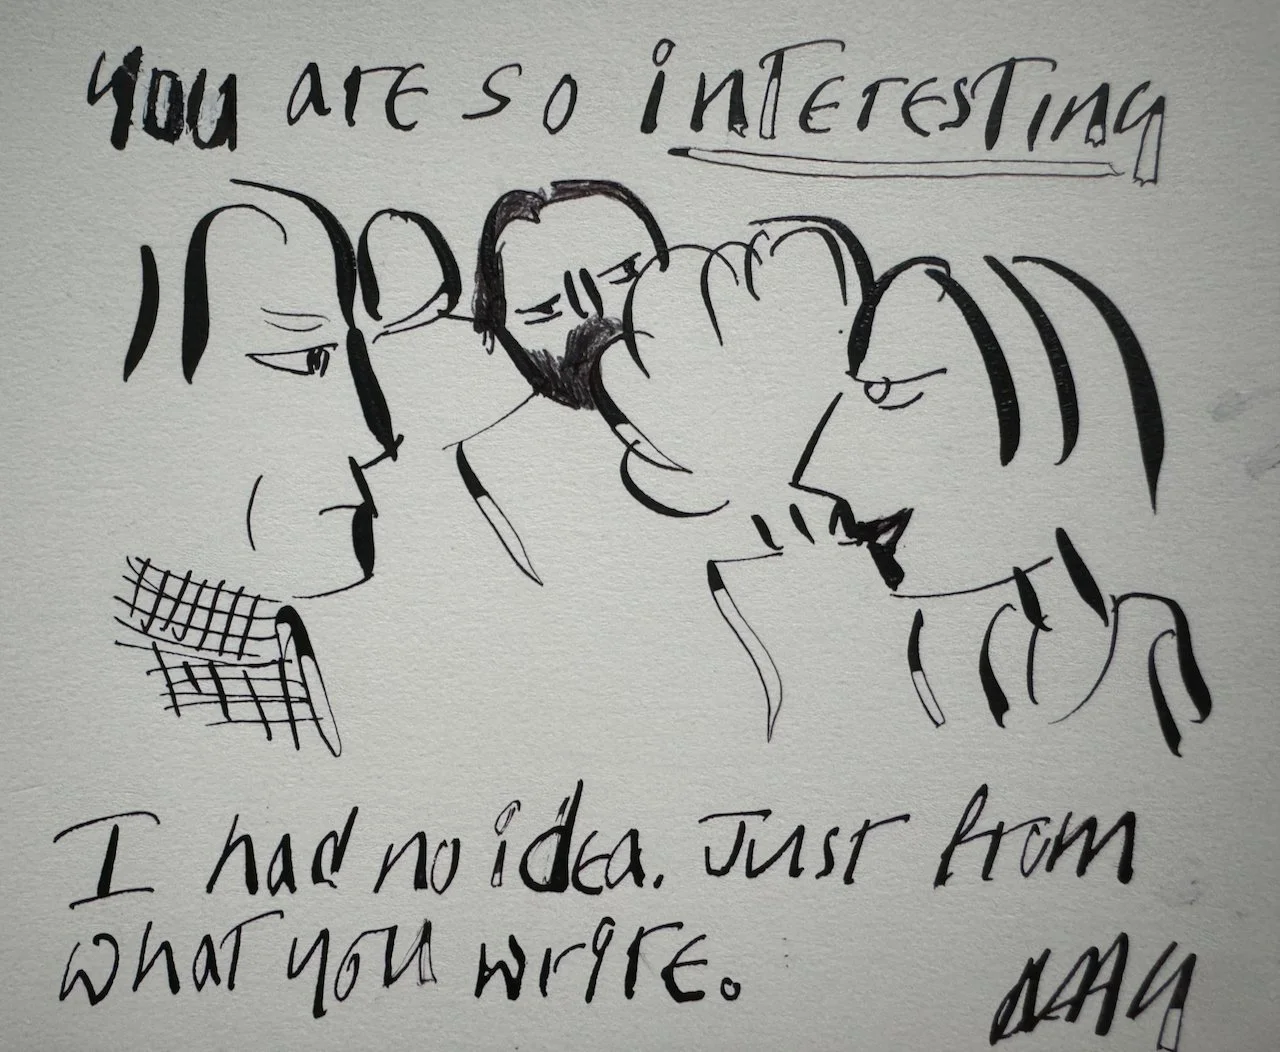 You are so interesting
I had no idea. Just from
what you write.